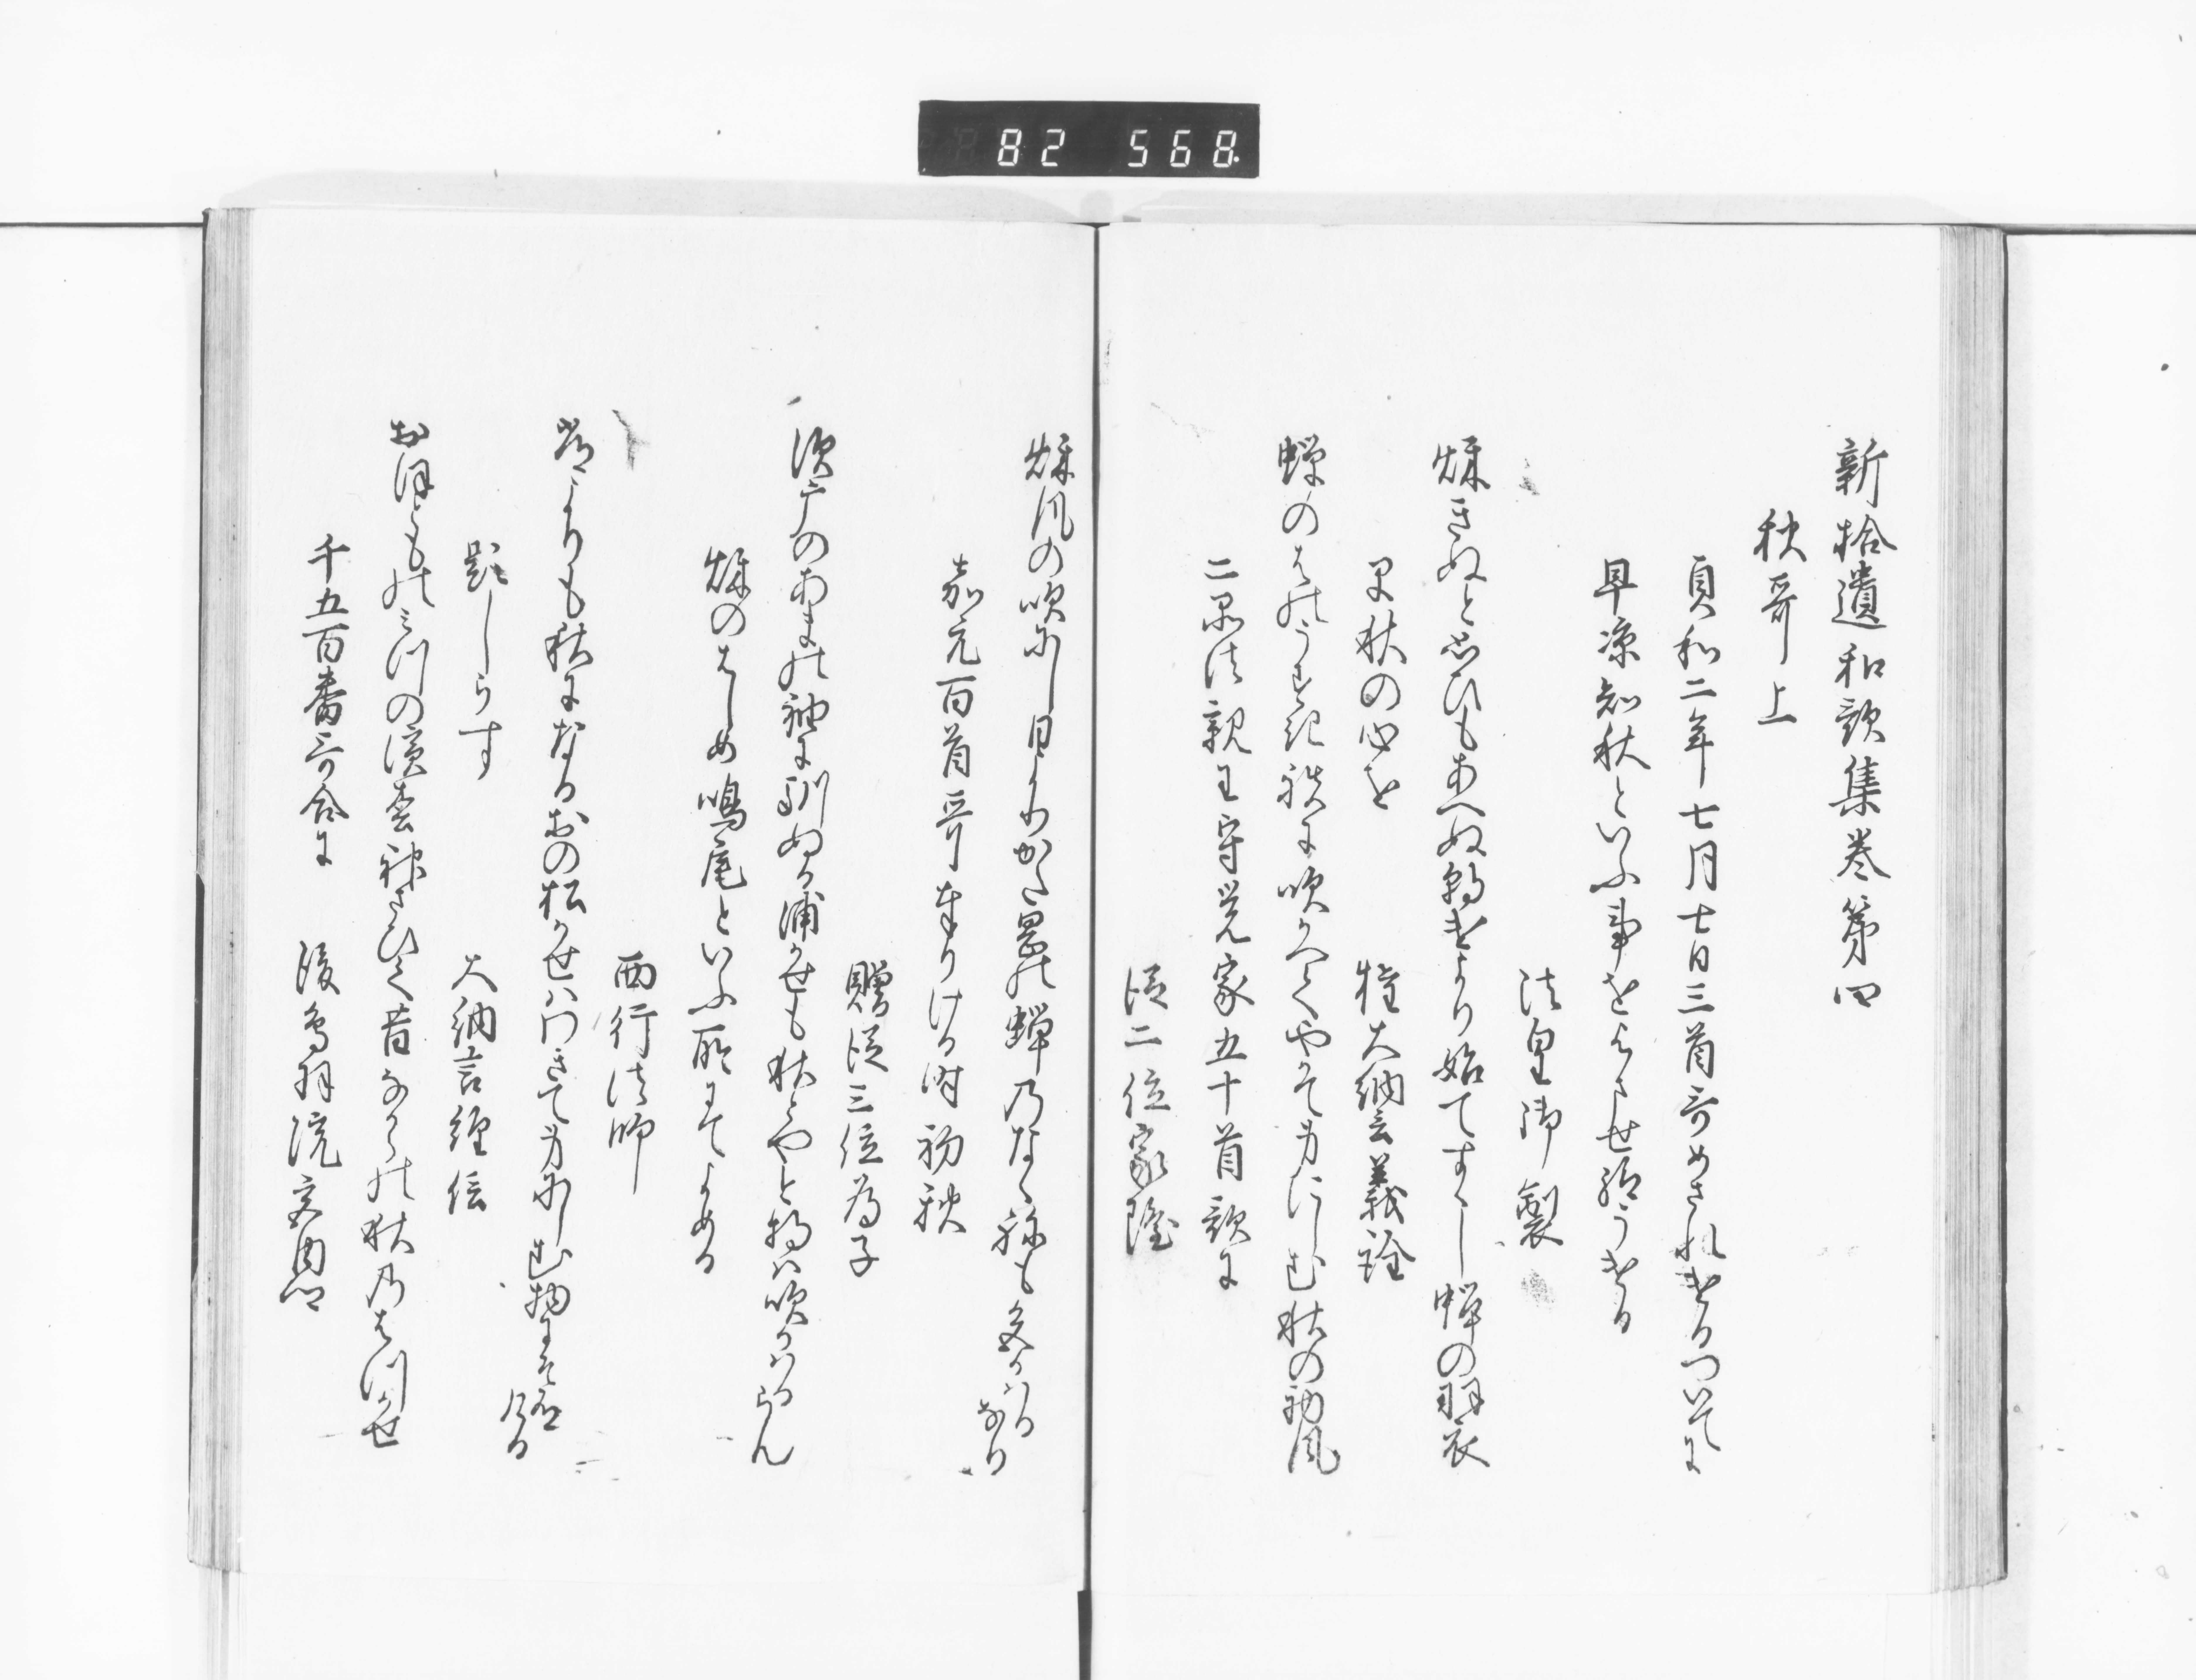 82 568
新拾遺和歌集巻第四
秋哥上
貞和二年七月七日三首哥めされけるついてに
早凉知秋といふ事をよませ給うける
法皇御製
穐きぬと思ひもあへぬ朝けより始てすゝし蝉の羽衣
早秋の心を
権大納言義詮
蝉のはのうすき袂に吹かへてやかて身にしむ秋の初風
二品法親王守覚家五十首歌に
従二位家隆
穐風の吹にし日よりかた岡の蝉乃なく祢も色かはるなり
嘉元百首哥奉りける時初秋
贈従三位為子
須广のあまの袖に馴ぬる浦かせも秋とやと物は吹かはるらん
穐のはしめ鳴尾といふ所にてよめる
西行法師
常よりも秋になるおの松かせはわきて身にしむ物にそ有ける
題しらす
大納言経信
おほとものみつの濱松神さひて昔なからの秋乃はつかせ
千五百番哥合に
後鳥羽院宮内卿